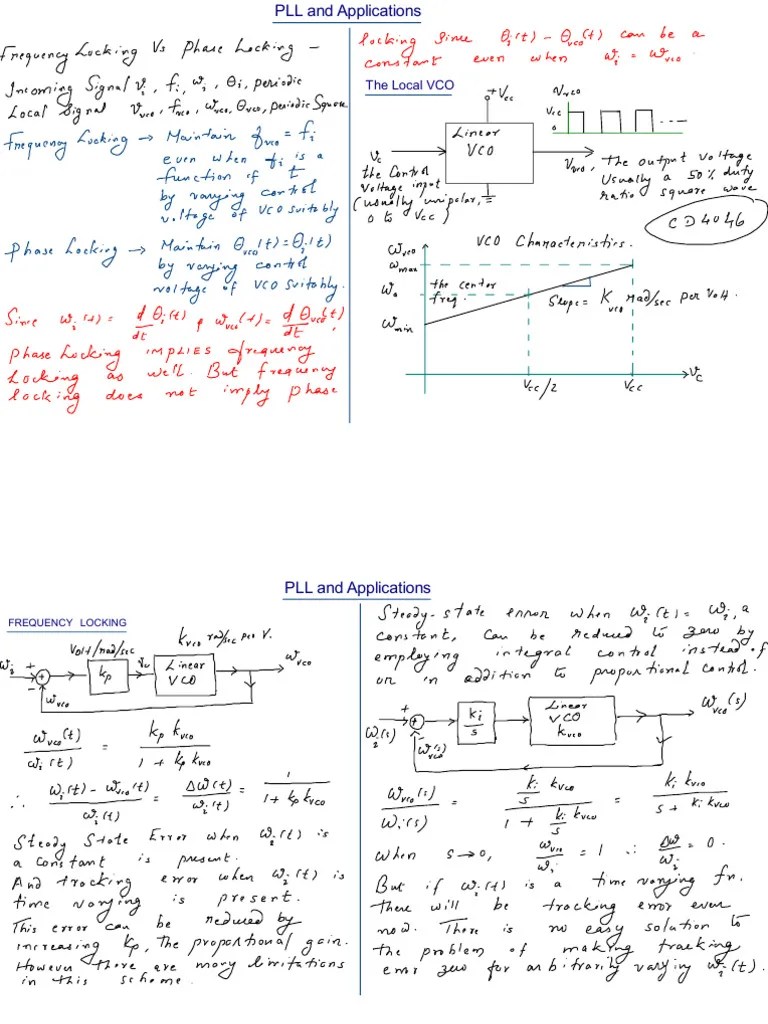 PLL and Applications
Frequency Locking Vs Phase Locking –
Incoming Signal vi, fi, ωi, θi, periodic
Local Signal vvco, fvco, ωvco, θvco, periodic Square
Frequency Locking → Maintain fvco = fi
even when fi is a
function if t
by varying control
voltage of VCO suitably
Phase Locking → Maintain θvco(t) = θi(t)
by varying control
voltage of VCO suitably.
Since ωi(t) = d θi(t)/dt & ωvco(t) = d θvco(t)/dt,
Phase Locking IMPLIES frequency
Locking as well. But frequency
locking does not imply phase
locking since θi(t) – θvco(t) can be a
constant even when ωi = ωvco.
The Local VCO
+Vcc
Vvco
Vcc
0
Linear
VCO
vc
the Control
Voltage input
(usually unipolar,
0 to Vcc)
Vvco, the output voltage
Usually a 50% duty
ratio square wave
CD4046
VCO Characteristics.
ωvco
ωmax
ωo
the center
freq.
Slope = Kvco rad/sec per Volt.
ωmin
Vcc/2
Vcc
vc
PLL and Applications
FREQUENCY LOCKING
Volt/rad/sec
kvco rad/sec per V.
ωi
+
–
kp
vc
Linear
VCO
ωvco
ωvco
ωvco(t)/ωi(t) = kp kvco/(1 + kp kvco)
∴ (ωi(t) – ωvco(t))/ωi(t) = Δω(t)/ωi(t) = 1/(1 + kp kvco)
Steady State Error when ωi(t) is
a constant is present.
And tracking error when ωi(t) is
time varying is present.
This error can be reduced by
increasing kp, the proportional gain.
However there are many limitations
in this scheme.
Steady-state error when ωi(t) = ωi, a
constant, can be reduced to zero by
employing integral control instead of
or in addition to proportional control.
ωi(s)
+
–
ki/s
Linear
VCO
kvco
ωvco(s)
ωvco(s)
ωvco(s)/ωi(s) = (ki/s kvco)/(1 + ki/s kvco) = ki kvco/(s + ki kvco)
When s→0, ωvco/ωi = 1 ∴ Δω/ωi = 0.
But if ωi(t) is a time varying fn.
there will be tracking error even
now. There is no easy solution to
the problem of making tracking
error zero for arbitrarily varying ωi(t).